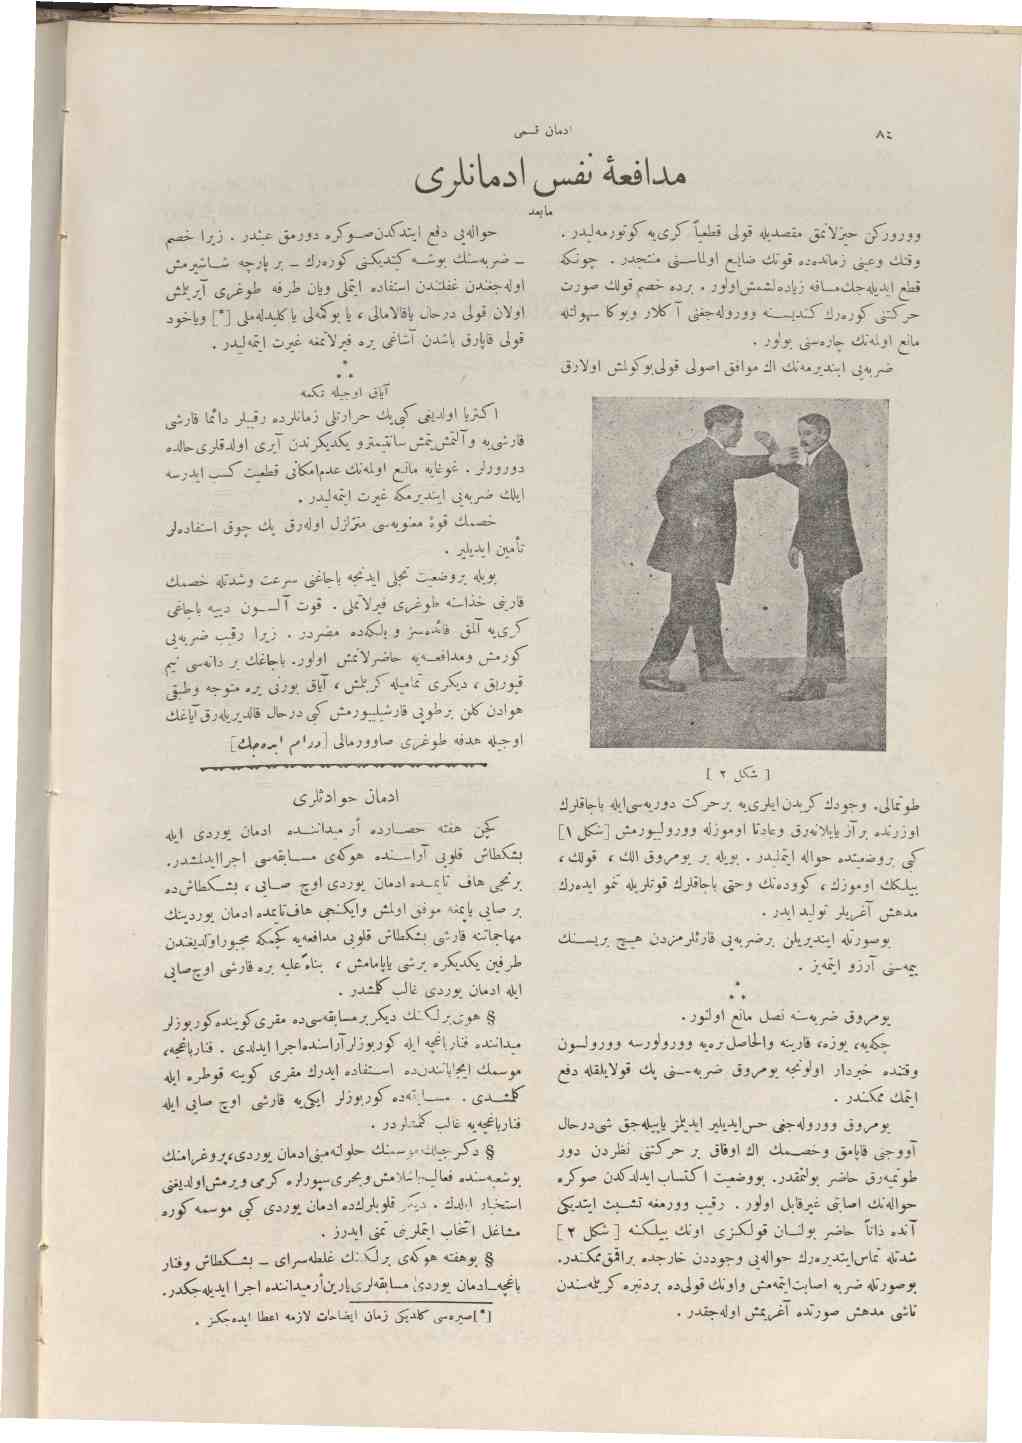 ادمان قسمی
٨٤
مدافعهٔ نفس ادمانلری
مابعد
وورورکن حیزلانمق مقصدیله قولی قطعیاً کری‌یه کوتورمه‌لیدر .
وقتك وعینی زمانده‌ده قوتك ضایع اولماسنی منتجدر . چونکه
قطع ایدیله‌جك مسافه زیاده‌لشمش اولور . برده خصم قولك صورت
حرکتنی کوره‌رك کندیسنه وورولاجغنی آکلار وبوکا سهولتله
مانع اولمه‌نك چاره‌سنی بولور .
ضربه‌یی ایندیرمه‌نك اك موافق اصولی قولی بوکولمش اولارق
[ شکل ٢ ]
طوتمالی. وجودك کریدن ایلری‌یه برحرکت دوریه‌سی‌ایله باجاقلرك
اوزرنده براز یایلانه‌رق وعادتا اوموزله وورولیورمش [شکل ١]
کبی بروضعیتده حواله ایتملیدر . بویله بر یومروق الك ، قولك ،
بیلکك اوموزك ، کووده‌نك وحتی باجاقلرك قوتلریله نمو ایده‌رك
مدهش آغریلر تولید ایدر .
بوصورتله ایندیریلن برضربه‌یی قارئلرمزدن هیچ بریسنك
ییمه‌سنی آرزو ایتمه‌یز .
* * *
یومروق ضربه‌سنه نصل مانع اولنور .
چکه‌یه، یوزه، قارینه والحاصل نره‌یه وورولورسه وورولسون
وقتنده خبردار اولونجه یومروق ضربه‌سنی پك قولایلقله دفع
ایتمك ممکندر .
یومروق وورولاجغی حس‌ایدیلیر ایدیلمز یاپیله‌جق شی‌درحال
آووجنی قاپامق وخصمك اك اوفاق بر حرکتنی نظردن دور
طوتمیه‌رق حاضر بولنمقدر. بووضعیت اکتساب ایدلدکدن صوکره
حواله‌نك اصابتی غیرقابل اولور . رقیب وورمغه تشبث ایتدیکی
آنده ذاتاً حاضر بولنان قولکزی اونك بیلکنه [ شکل ٢ ]
شدتله تماس‌ایتدیره‌رك حواله‌یی وجوددن خارجده براقمق ممکندر.
بوصورتله ضربه اصابت‌ایتمه‌مش واونك قولی‌ده بردنبره کریله‌سندن
ناشی مدهش صورتده آغریمش اوله‌جقدر .
حواله‌یی دفع ایتدکدن‌صوکره دورمق عبثدر . زیرا خصم
ـ ضربه‌سنك بوشه کیتدیکنی کوره‌رك ـ بر پارچه شاشیرمش
اوله‌جغندن غفلتندن استفاده ایتملی ویان طرفه طوغری آیریلمش
اولان قولی درحال یاقالامالی ، یا بوکمه‌لی یا کلیدله‌ملی [*] ویاخود
قولی قاپارق باشدن آشاغی یره فیرلاتمغه غیرت ایتمه‌لیدر .
* * *
آیاق اوجیله تکمه
اکثریا اولدیغی کبی‌پك حرارتلی زمانلرده رقیبلر دائما قارشی
قارشی‌یه و آلتمش‌یتمش سانتیمترو یکدیکرندن آیری اولدقلری‌حالده
دورورلر . غوغایه مانع اولمه‌نك عدم‌امکانی قطعیت کسب ایدرسه
ایلك ضربه‌یی ایندیرمکه غیرت ایتمه‌لیدر .
خصمك قوهٔ معنویه‌سی متزلزل اوله‌رق پك چوق استفاده‌لر
تأمین ایدیلیر .
بویله بروضعیت تجلی ایدنجه باجاغنی سرعت وشدتله خصمك
قارینی خذاسنه طوغری فیرلاتملی . قوت آلسون دییه باجاغی
کری‌یه آلمق فائده‌سز و بلکه‌ده مضردر . زیرا رقیب ضربه‌یی
کورمش ومدافعه‌یه حاضرلانمش اولور. باجاغك بر دانه‌سی نیم
قیوریق ، دیکری تمامیله کریلمش ، آیاق بورنی یره متوجه وطبقی
هوادن کلن برطوپی قارشیلییورمش کبی درحال قالدیریله‌رق آیاغك
اوجیله هدفه طوغری صاوورمالی [دوام ایده‌جك]
ادمان حوادثلری
کچن هفته حصارده أر میداننده ادمان یوردی ایله
بشکطاش قلوبی آراسنده هوکه‌ی مسابقه‌سی اجراایدلمشدر.
برنجی هاف تایمده ادمان یوردی اوچ صایی ، بشکطاش‌ده
بر صایی یاپمغه موفق اولمش وایکنجی هاف‌تایمده ادمان یوردینك
مهاجماتنه قارشی بشکطاش قلوبی مدافعه‌یه کچمکه مجبوراولدیغندن
طرفین یکدیکره برشی یاپامامش ، بناءً علیه بره قارشی اوچ‌صایی
ایله ادمان یوردی غالب کلمشدر .
§ هوی‌برلکنك دیکر برمسابقه‌سی‌ده مقری‌کوینده کوربوزلر
میداننده فنارباغچه ایله کوربوزلرآراسنده‌اجرا ایدلدی . فنارباغچه،
موسمك ایجاباتندن‌ده استفاده ایدرك مقری کوینه قوطره ایله
کلمشدی . مسابقه‌ده کوربوزلر ایکی‌یه قارشی اوچ صایی ایله
فنارباغچه‌یه غالب کلمشلردر .
§ دکزجیلك‌موسمنك حلولنه‌مبنی‌ادمان یوردی،پروغرامنك
بوشعبه‌سنده فعالیته‌باشلامش وبحری‌سپورلره کرمی ویرمش‌اولدیغنی
استخبار ایلدك . دیکر قلوبلرك‌ده ادمان یوردی کبی موسمه کوره
مشاغل انتخاب ایتملرینی تمنی ایدرز .
§ بوهفته هوکه‌ی برلکنك غلطه‌سرای ـ بشکطاش وفنار
باغچه‌ـادمان یوردی مسابقه‌لری‌یارین‌أرمیداننده اجرا ایدیله‌جکدر.
[*]صیره‌سی کلدیکی زمان ایضاحات لازمه اعطا ایده‌جکز .